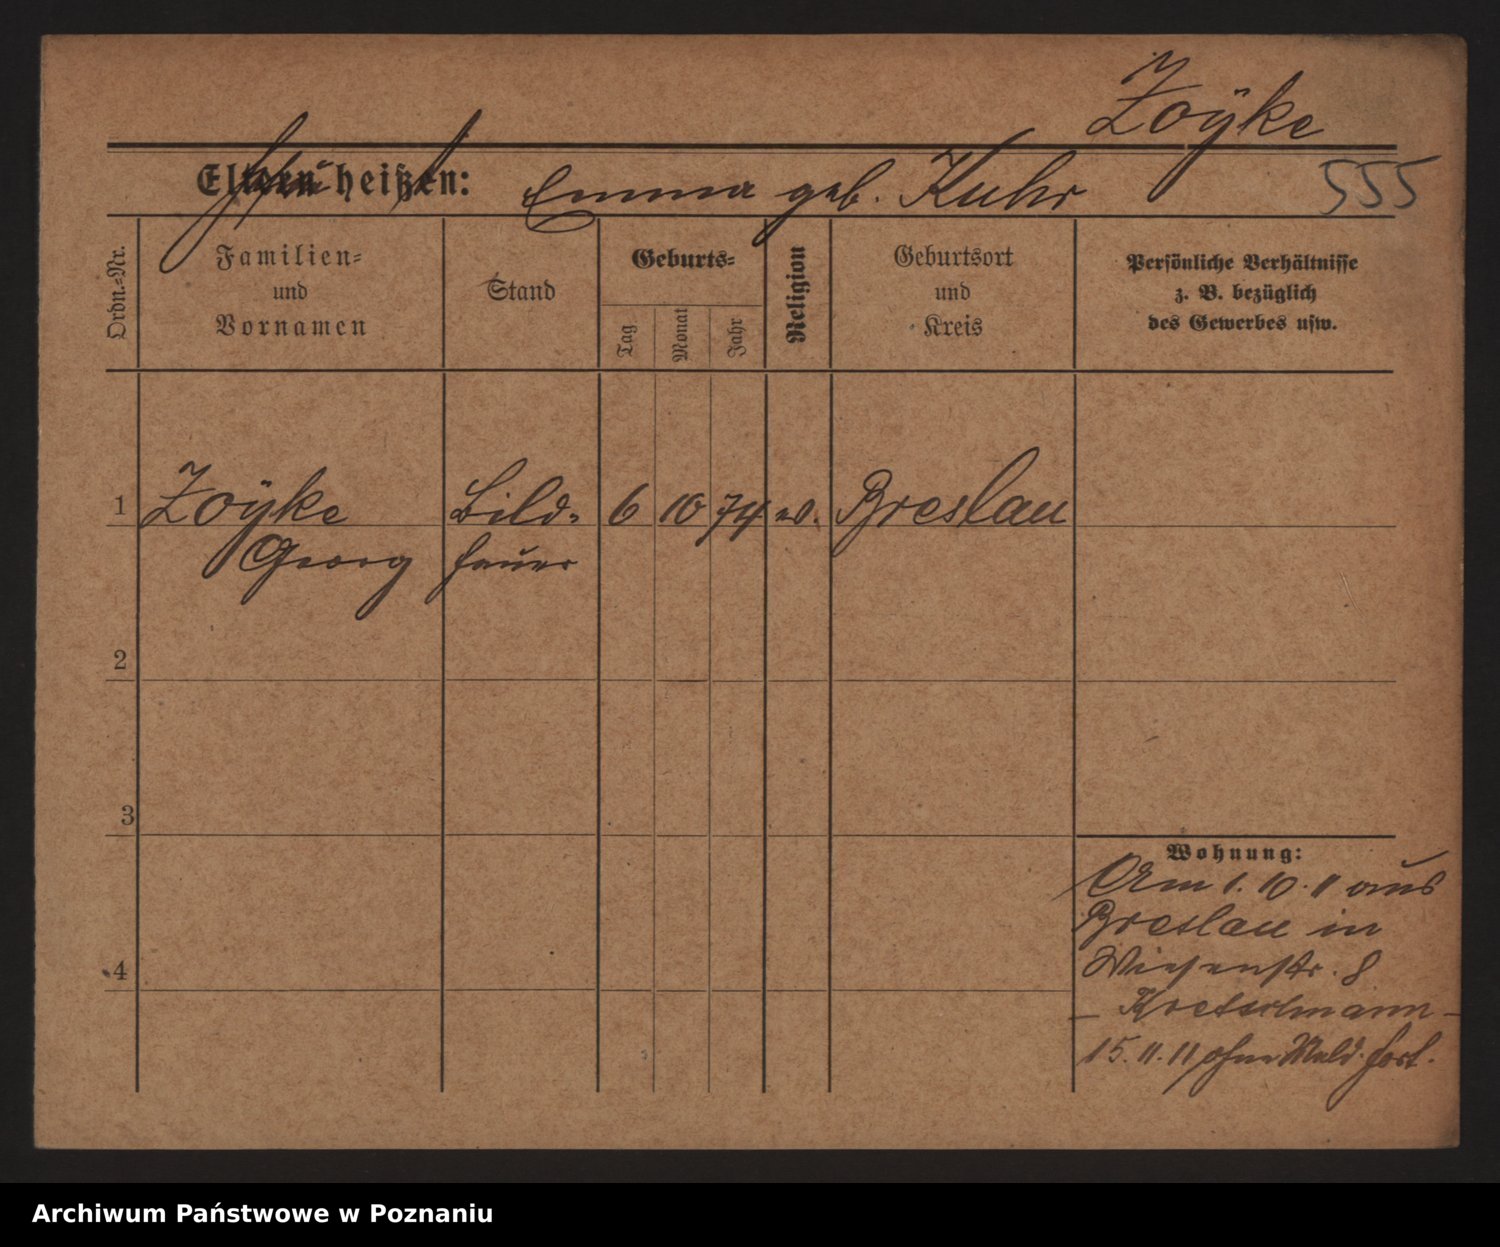 Zoÿke
Eltern heißen: Emma geb. Kuhr
555
Ordn.=Nr.
Familien=
und
Vornamen
Stand
Geburts=
Tag
Monat
Jahr
Religion
Geburtsort
und
Kreis
Persönliche Verhältnisse
z. B. bezüglich
des Gewerbes usw.
1 Zoÿke Bild= 6 10 74 ev. Breslau
Georg hauer
2
3
Wohnung:
Am 1. 10. 11 aus
Breslau in
4 Wiesenstr. 8
– Kretschmann –
15. 11. 11 ohne Meld. fort.
Archiwum Państwowe w Poznaniu